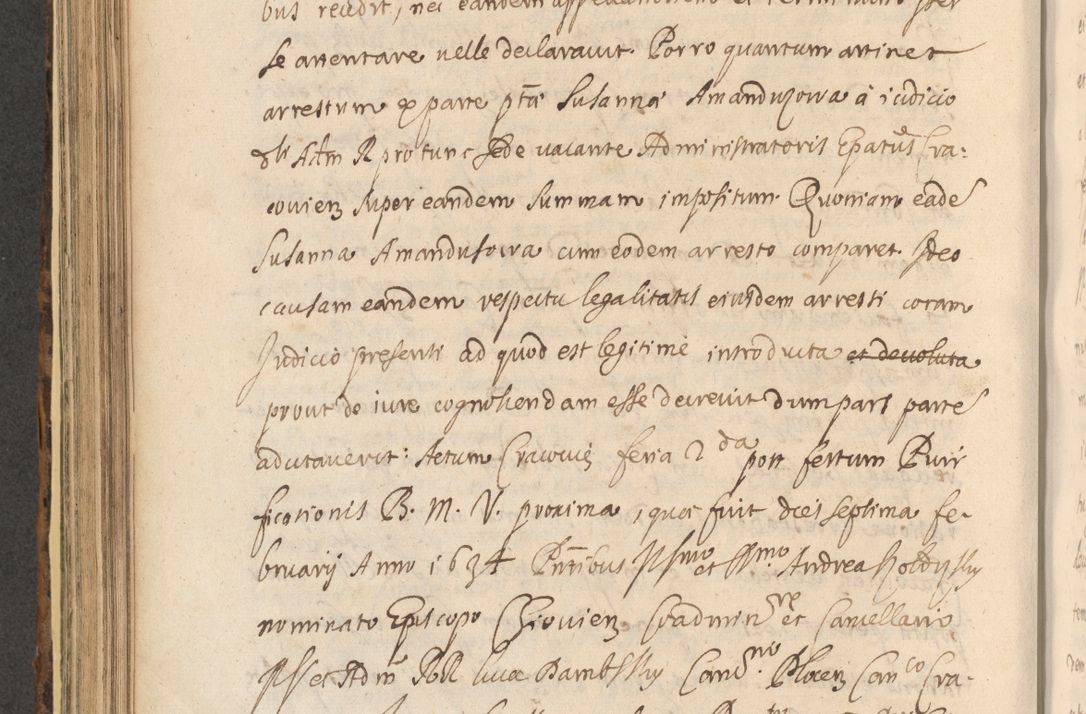 bus recedit, nec eandem appellationem
se attentare uelle declarauit. Porro quantum attinet
arrestum ex parte ptæ Susannæ Amanduzowa à iudicio
Adm R pro tunc Sede uacante Administratoris Epatûs Cra:
couien super eandem summam impositum. Quoniam eade
Susanna Amandusowa cum eodem arresto comparet. Ideo
causam eandem respectu legalitatis eiusdem arresti coram
Judicio presenti ad quod est legitime introducta et deuoluta
prout de iure cognoscendam esse decreuit dum pars parte
adcitauerit: Actum Cracouiæ feria 2da post festum Puri
ficationis B. M. V. proxima, quæ fuit dies septima fe-
bruarij Anno 1634 Pntibus Illmo et Rmo Andrea Szołdrsky
nominato Episcopo Chiouien et Cancellario
Ill et Adm RR Luca Dambsky Plocen Canco Cra-